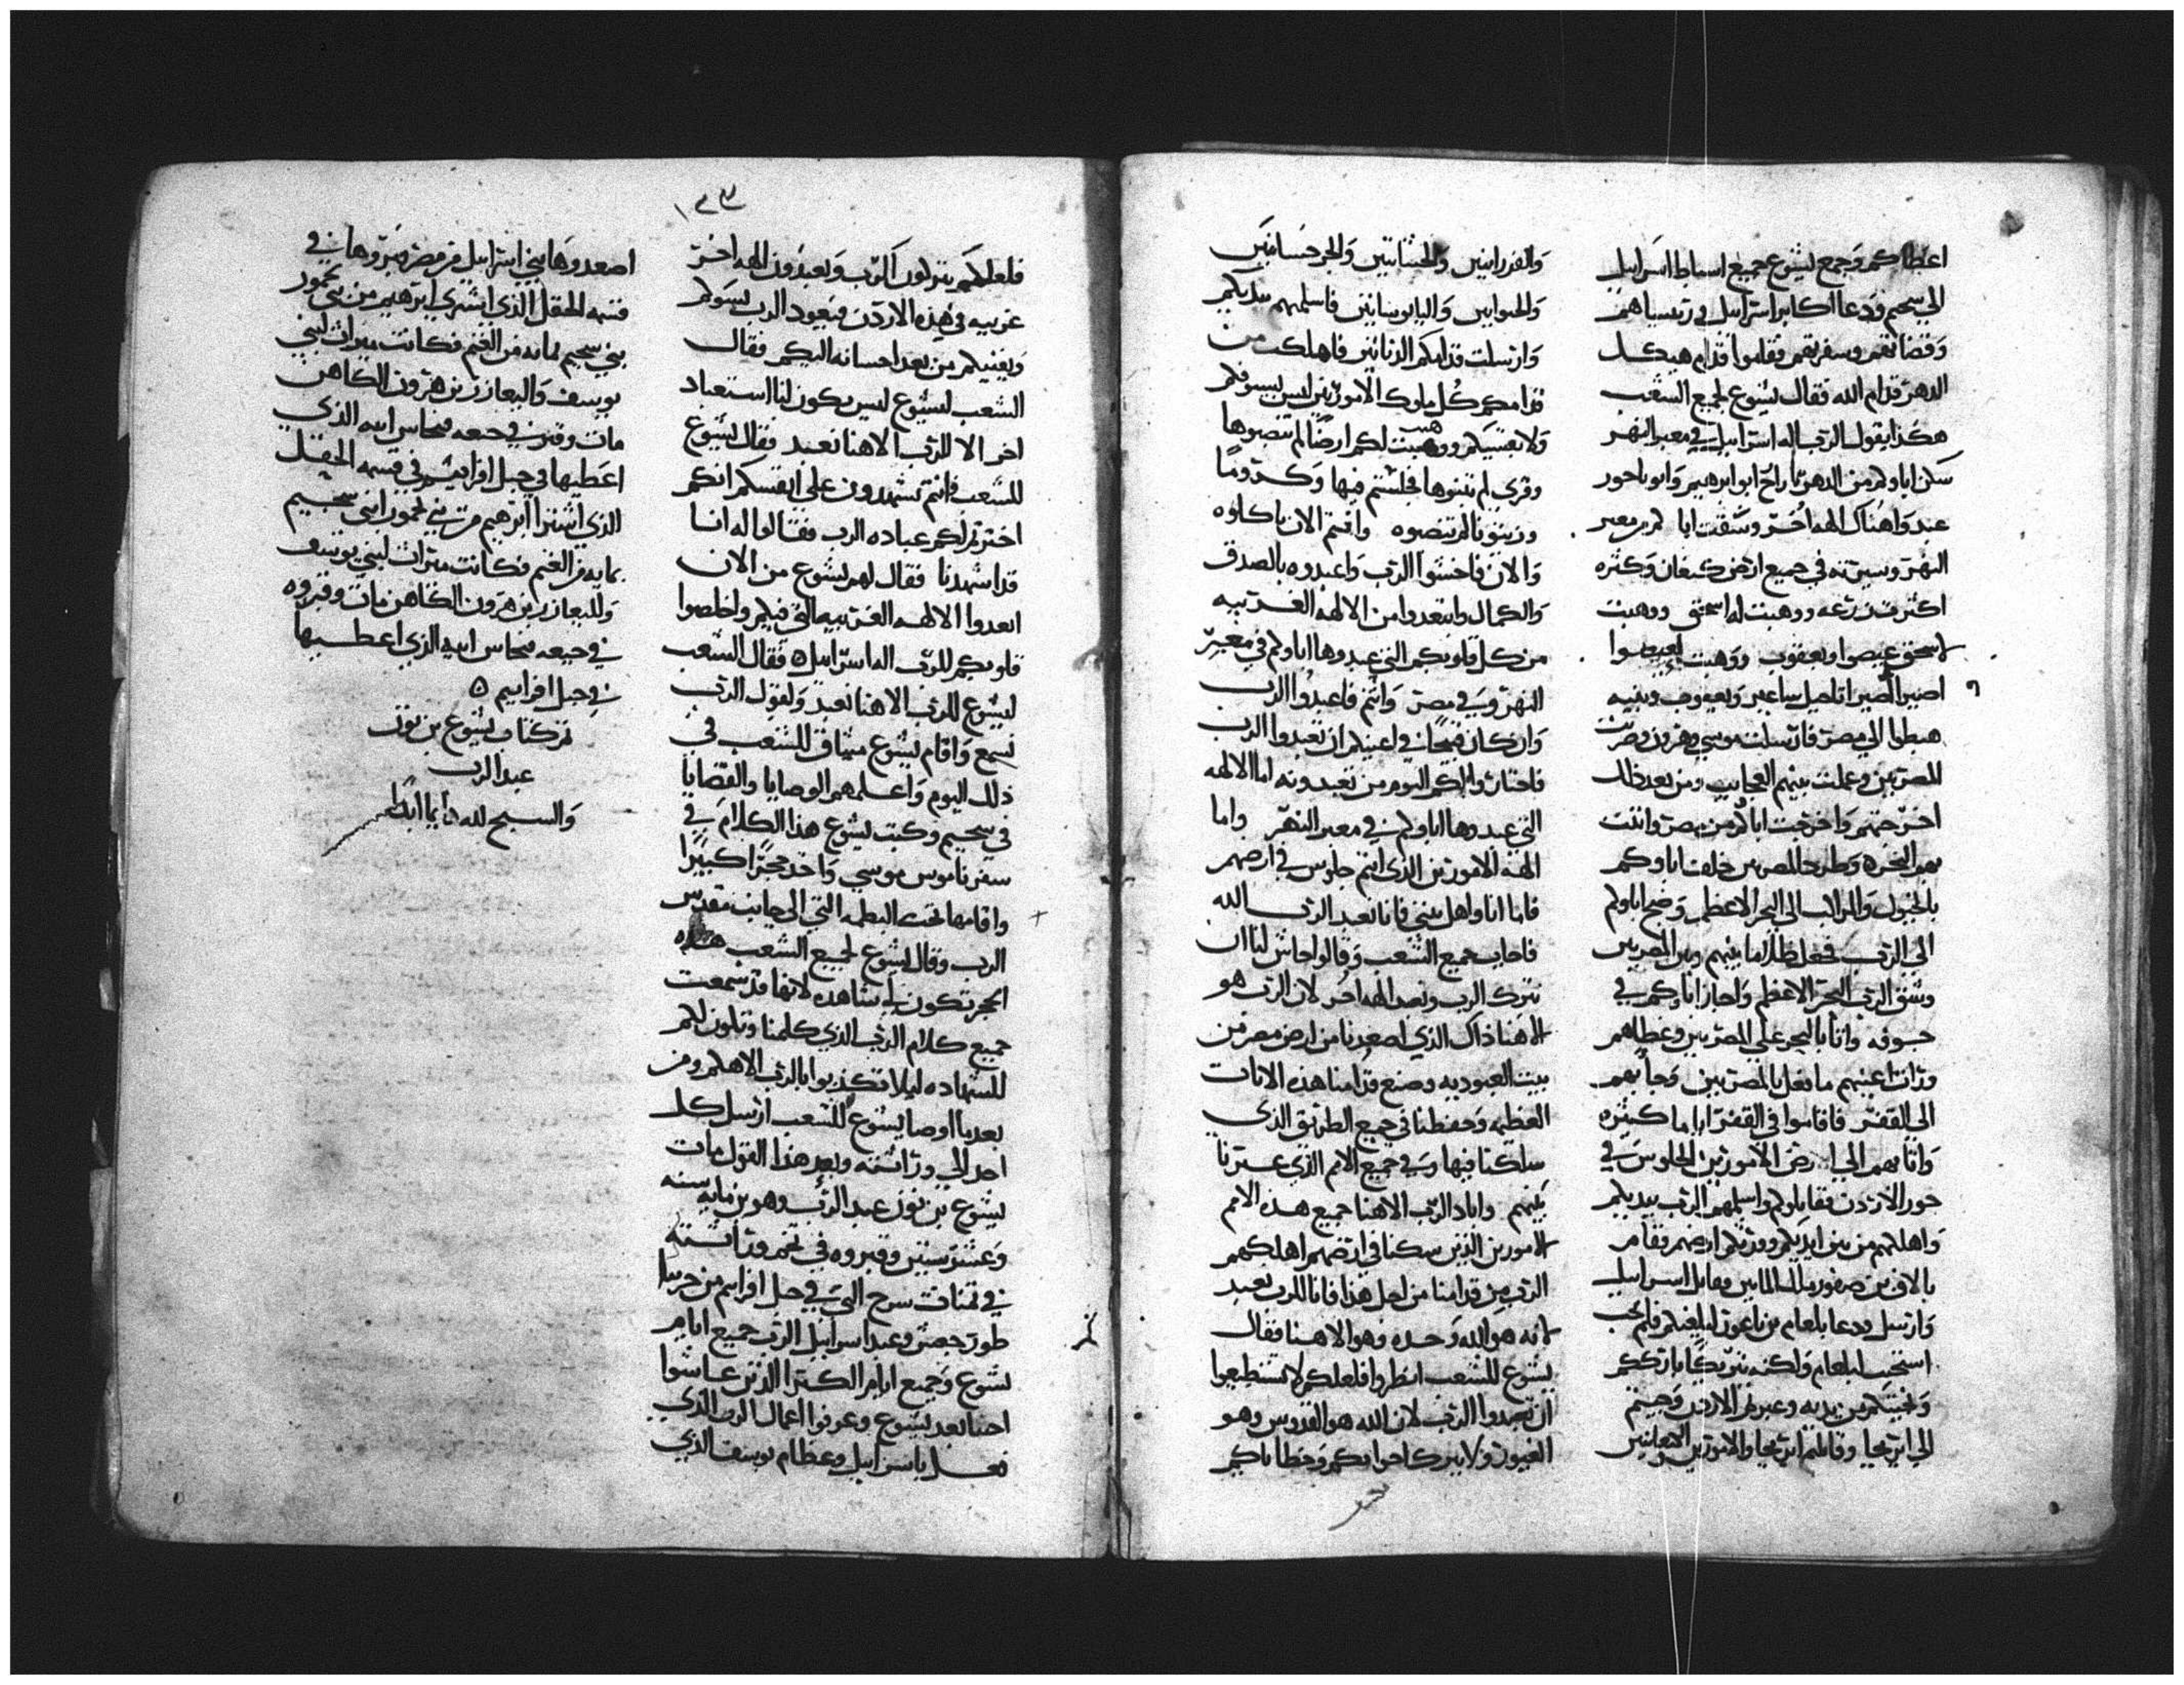 اعطاكم وجمع يشوع جميع اسباط اسراييل
الي سحيم ودعا اكابر اسراييل وريساهم
وقضاتهم وسفرتهم فقاموا قدام هيكل
الدهر قدام الله فقال يشوع لجميع الشعب
هكذا يقول الرب اله اسراييل في معبر النهر
سكن اباوكم من الدهر تارح ابو ابرهيم وابو ناحور
عبدوا هناك الهه اخر وسقت اباكم من معبر
النهر وسيرته في جميع ارض كنعان وكثره
اكثرت زرعه ووهبت له اسحق ووهبت
لاسحق عيصوا ويعقوب ووهبت لعيصوا
جبل ساعير ويعقوب وبنيه
هبطوا الي مصر فارسلت موسي وهرون وضربت
المصريين وعملت بينهم العجايب ومن بعد ذلك
اخرجتهم واخرجت اباكم من مصر واتت
بهم البحره وطردا المصريين خلف اباوكم
بالخيول والمراكب الي البحر الاعظم وضج اباوكم
الي الرب فجعل ظلاما بينهم وبين المصريين
وشق الرب البحر الاعظم واجاز اباوكم في
جوفه واتا بالبحر علي المصريين وغطاهم
ورات اعينهم ما فعل بالمصريين وجا بهم
الي القفر فاقاموا في القفر اياما كثيره
واتا بهم الي ارض الاموريين الجلوس في
حور الاردن فقاتلوكم واسلمهم الرب بيديكم
واهلكهم من بين ايديكم وورثكم ارضهم فقام
بالاق بن صفور ملك المابين وقاتل اسراييل
وارسل ودعا بلعام بن باعور ليلعنكم فلم احب
استجيب لبلعام ولكنه تبريكا بارككم
ونجيتكم من يديه وعبرتم الاردن وجيتم
الي اريحا وقاتلتم اريحا والاموريين والكنعانيين
والفرزانيين والحثانيين والجرجسانيين
والحوايين واليابوسانيين فاسلمهم بيديكم
وارسلت قدامكم الزنانير فاهلكت من
قدامكم كل ملوك الاموريين ليس بسيوفكم
ولا بقسيكم ووهبت لكم ارضا لم تنصبوها
وقري لم تبنوها فجلستم فيها وكروما
وزيتونا لم تنصبوه وانتم الان تاكلوه
والان فاخشوا الرب واعبدوه بالصدق
والكمال وابتعدوا من الالهه الغريبه
من كل قلوبكم التي عبدوها اباوكم في معبر
النهر وفي مصر وانتم فاعبدوا الرب
وان كان قبيحا في اعينكم ان تعبدوا الرب
فاختاروا لكم اليوم من تعبدونه اما الالهه
التي عبدوها اباوكم في معبر النهر واما
الهه الاموريين الذي انتم جلوس في ارضهم
فاما انا واهل بيتي فانا نعبد الرب الله
فاجاب جميع الشعب وقالوا حاش لنا ان
نترك الرب ونعبد الهه اخر لان الرب هو
الاهنا ذاك الذي اصعدنا من ارض مصر من
بيت العبوديه وصنع قدامنا هذه الايات
العظيمه وحفظنا في جميع الطريق الذي
سلكنا فيها وفي جميع الامم الذي عبرنا
بينهم واباد الرب الاهنا جميع هذه الامم
الاموريين الذين سكنا في ارضهم اهلكهم
الرب من قدامنا من اجل هذا فانا للرب نعبد
لانه هو الله وحده وهو الاهنا فقال
يشوع للشعب انظروا فلعلكم لا تستطيعوا
ان تعبدوا الرب لان الله هو القدوس وهو
الغيور ولا يترك احوابكم وخطاياكم
١٣٣
فلعلكم تتركون الرب وتعبدون الهه اخر
غريبه في هذه الاردن فيعود الرب يسوكم
ويفنيكم من بعد احسانه اليكم فقال
الشعب ليشوع ليس يكون لنا استعباد
اخر الا للرب الاهنا نعبد فقال يشوع
للشعب فانتم تشهدون علي انفسكم انكم
اخترتم لكم عباده الرب فقالوا له انا
قد اشهدنا فقال لهم يشوع من الان
ابعدوا الالهه الغريبه التي فيكم واخلصوا
قلوبكم للرب اله اسراييل فقال الشعب
ليشوع للرب الاهنا نعبد ولقول الرب
نسمع واقام يشوع ميثاق للشعب في
ذلك اليوم واعلمهم الوصايا والقضايا
في سحيم وكتب يشوع هذا الكلام في
سفر ناموس موسي واخذ حجرا كبيرا
واقامها تحت البطمه التي الي جانب مقدس
الرب وقال يشوع لجميع الشعب هذه
الحجر تكون لي شاهده لانها قد سمعت
جميع كلام الرب الذي كلمنا وتكون لكم
للشهاده ليلا تكذبوا بالرب الاهكم ومن
بعد ما اوصا يشوع للشعب ارسل كل
احد الي وراثته وبعد هذا القول مات
يشوع بن نون عبد الرب وهو بن مايه سنه
وعشر سنين وقبروه في تخم وراثته
في تمنات سرح التي في جبل افرايم من جربيا
طور جعش وعبد اسراييل الرب جميع ايام
يشوع وجميع ايام الكبرا الذين عاشوا
احيا بعد يشوع وعرفوا اعمال الرب الذي
فعل باسراييل وعظام يوسف الذي
اصعدوها بني اسراييل من مصر قبروها في
قسمه الحقل الذي اشتري ابرهيم من بني حمور
بني سحيم بمايه من الغنم فكانت ميراث لبني
يوسف واليعازر بن هرون الكاهن
مات وقبر في جبعه فنحاس ابنه الذي
اعطيها في جبل افرايم في قسمه الحقل
الذي اشترا ابرهيم من بني حمور ابني سحيم
بمايه من الغنم فكانت ميراث لبني يوسف
وللعازر بن هرون الكاهن مات وقبروه
في جبعه فنحاس ابنه الذي اعطيها
في جبل افرايم ه
تم كتاب يشوع بن نون
عبد الرب
والسبح لله دايما ابدا